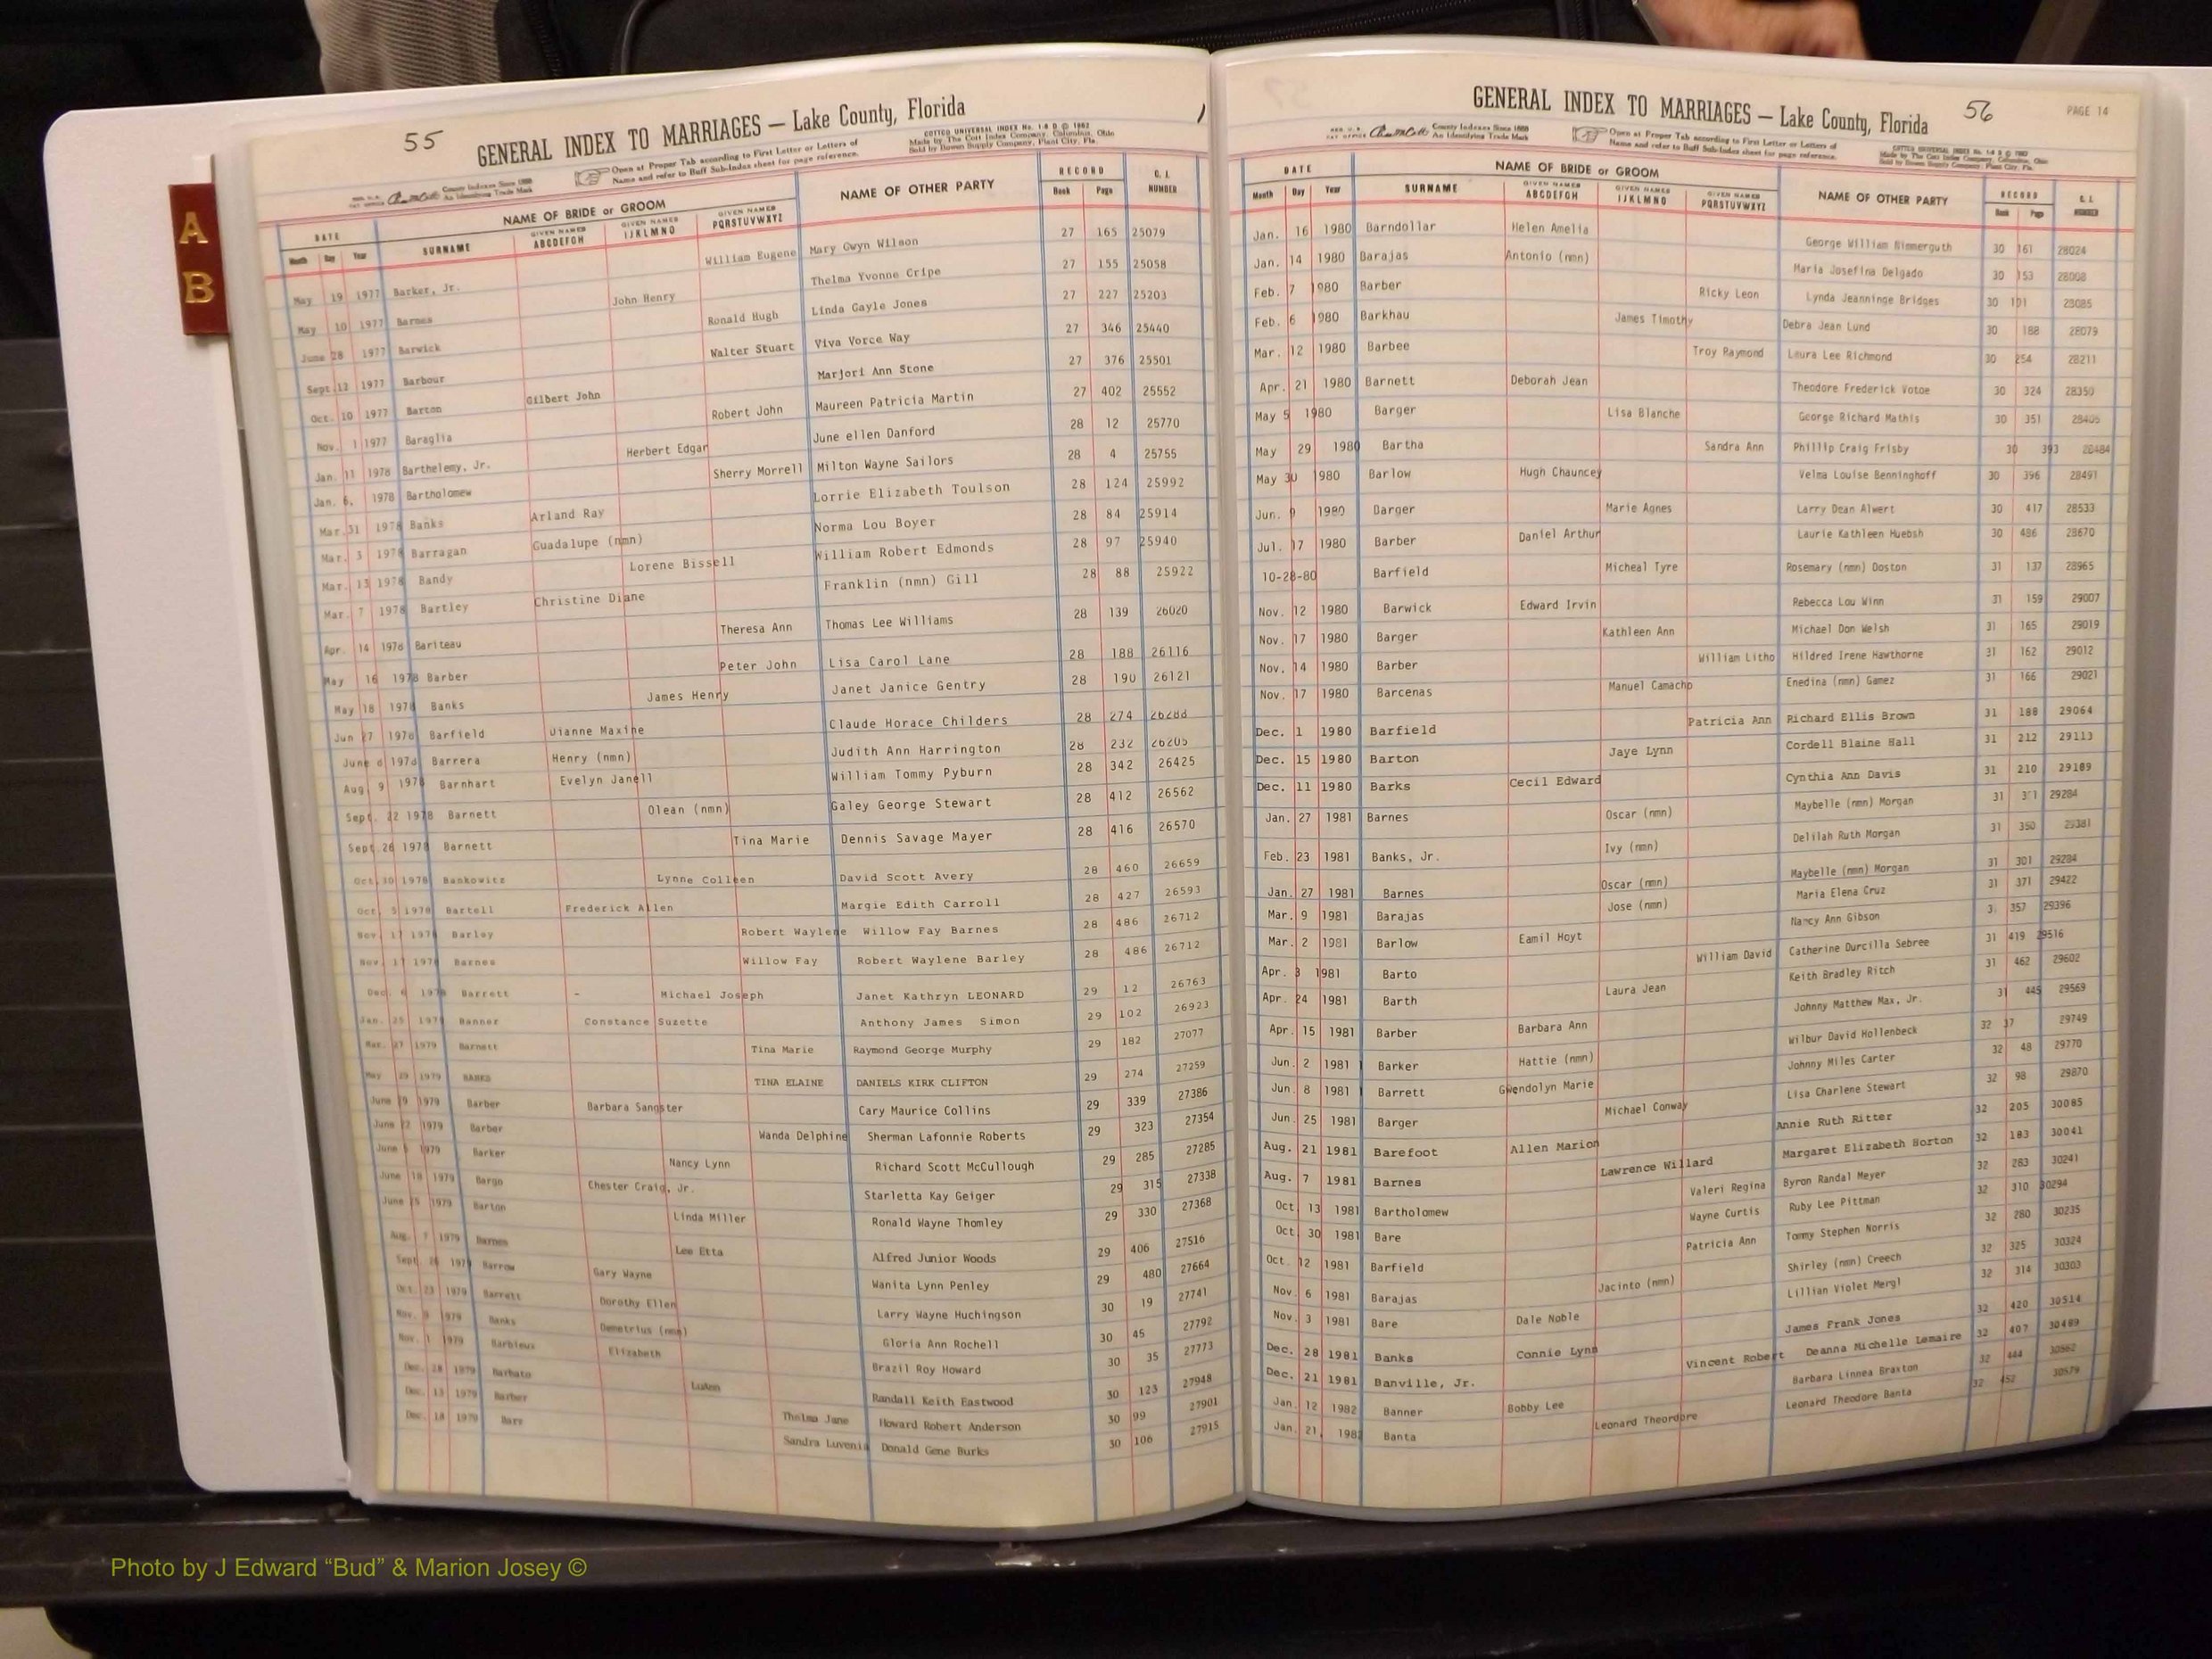 A
B
55
GENERAL INDEX TO MARRIAGES — Lake County, Florida
COTTCO UNIVERSAL INDEX No. 1-8 D © 1962
Made by The Cott Index Company, Columbus, Ohio
Sold by Bowen Supply Company, Plant City, Fla.
County Indexes Since 1888
An Identifying Trade Mark
Open at Proper Tab according to First Letter or Letters of
Name and refer to Buff Sub-Index sheet for page reference.
DATE NAME OF BRIDE or GROOM NAME OF OTHER PARTY RECORD C. I. NUMBER
Month Day Year SURNAME GIVEN NAMES ABCDEFGH GIVEN NAMES IJKLMNO GIVEN NAMES PQRSTUVWXYZ Book Page
May 19 1977 Barker, Jr. William Eugene Mary Gwyn Wilson 27 165 25079
May 10 1977 Barnes John Henry Thelma Yvonne Cripe 27 155 25058
June 28 1977 Barwick Ronald Hugh Linda Gayle Jones 27 227 25203
Sept.12 1977 Barbour Walter Stuart Viva Vorce Way 27 346 25440
Oct. 10 1977 Barton Gilbert John Marjori Ann Stone 27 376 25501
Nov. 1 1977 Baraglia Robert John Maureen Patricia Martin 27 402 25552
Jan. 11 1978 Barthelemy, Jr. Herbert Edgar June ellen Danford 28 12 25770
Jan. 6, 1978 Bartholomew Sherry Morrell Milton Wayne Sailors 28 4 25755
Mar.31 1978 Banks Arland Ray Lorrie Elizabeth Toulson 28 124 25992
Mar. 3 1978 Barragan Guadalupe (nmn) Norma Lou Boyer 28 84 25914
Mar. 13 1978 Bandy Lorene Bissell William Robert Edmonds 28 97 25940
Mar. 7 1978 Bartley Christine Diane Franklin (nmn) Gill 28 88 25922
Apr. 14 1978 Bariteau Theresa Ann Thomas Lee Williams 28 139 26020
May 16 1978 Barber Peter John Lisa Carol Lane 28 188 26116
May 18 1978 Banks James Henry Janet Janice Gentry 28 190 26121
Jun 27 1978 Barfield Dianne Maxine Claude Horace Childers 28 274 26288
June 6 1978 Barrera Henry (nmn) Judith Ann Harrington 28 232 26205
Aug. 9 1978 Barnhart Evelyn Janell William Tommy Pyburn 28 342 26425
Sept. 22 1978 Barnett Olean (nmn) Galey George Stewart 28 412 26562
Sept.26 1978 Barnett Tina Marie Dennis Savage Mayer 28 416 26570
Oct.30 1978 Bankowitz Lynne Colleen David Scott Avery 28 460 26659
Oct. 5 1978 Bartell Frederick Allen Margie Edith Carroll 28 427 26593
Nov. 17 1978 Barley Robert Waylene Willow Fay Barnes 28 486 26712
Nov. 17 1978 Barnes Willow Fay Robert Waylene Barley 28 486 26712
Dec. 4 1978 Barrett - Michael Joseph Janet Kathryn LEONARD 29 12 26763
Jan. 25 1979 Banner Constance Suzette Anthony James Simon 29 102 26923
Mar. 27 1979 Barnett Tina Marie Raymond George Murphy 29 182 27077
May 29 1979 BANKS TINA ELAINE DANIELS KIRK CLIFTON 29 274 27259
June 29 1979 Barber Barbara Sangster Cary Maurice Collins 29 339 27386
June 22 1979 Barber Wanda Delphine Sherman Lafonnie Roberts 29 323 27354
June 1979 Barker Nancy Lynn Richard Scott McCullough 29 285 27285
June 18 1979 Bargo Chester Craig, Jr. Starletta Kay Geiger 29 315 27338
June 25 1979 Barton Linda Miller Ronald Wayne Thomley 29 330 27368
Aug. 7 1979 Barnes Lee Etta Alfred Junior Woods 29 406 27516
Sept. 26 1979 Barrow Gary Wayne Wanita Lynn Penley 29 480 27664
Oct. 23 1979 Barrett Dorothy Ellen Larry Wayne Huchingson 30 19 27741
Nov. 9 1979 Banks Demetrius (nmn) Gloria Ann Rochell 30 45 27792
Nov. 1 1979 Barbieux Elizabeth Brazil Roy Howard 30 35 27773
Dec. 28 1979 Barbato LuAnn Randall Keith Eastwood 30 123 27948
Dec. 13 1979 Barber Thelma Jane Howard Robert Anderson 30 99 27901
Dec. 18 1979 Barr Sandra Luvenia Donald Gene Burks 30 106 27915
56
PAGE 14
GENERAL INDEX TO MARRIAGES — Lake County, Florida
County Indexes Since 1888
An Identifying Trade Mark
Open at Proper Tab according to First Letter or Letters of
Name and refer to Buff Sub-Index sheet for page reference.
COTTCO UNIVERSAL INDEX No. 1-8 D © 1962
Made by The Cott Index Company, Columbus, Ohio
Sold by Bowen Supply Company, Plant City, Fla.
DATE NAME OF BRIDE or GROOM NAME OF OTHER PARTY RECORD C. I. NUMBER
Month Day Year SURNAME GIVEN NAMES ABCDEFGH GIVEN NAMES IJKLMNO GIVEN NAMES PQRSTUVWXYZ Book Page
Jan. 16 1980 Barndollar Helen Amelia George William Nimmerguth 30 161 28024
Jan. 14 1980 Barajas Antonio (nmn) Maria Josefina Delgado 30 153 28008
Feb. 7 1980 Barber Ricky Leon Lynda Jeanninge Bridges 30 191 28085
Feb. 6 1980 Barkhau James Timothy Debra Jean Lund 30 188 28079
Mar. 12 1980 Barbee Troy Raymond Laura Lee Richmond 30 254 28211
Apr. 21 1980 Barnett Deborah Jean Theodore Frederick Votoe 30 324 28350
May 5 1980 Barger Lisa Blanche George Richard Mathis 30 351 28405
May 29 1980 Bartha Sandra Ann Phillip Craig Frisby 30 393 28484
May 30 1980 Barlow Hugh Chauncey Velma Louise Benninghoff 30 396 28491
Jun. 9 1980 Barger Marie Agnes Larry Dean Alwert 30 417 28533
Jul. 17 1980 Barber Daniel Arthur Laurie Kathleen Huebsh 30 486 28670
10-28-80 Barfield Micheal Tyre Rosemary (nmn) Doston 31 137 28965
Nov. 12 1980 Barwick Edward Irvin Rebecca Lou Winn 31 159 29007
Nov. 17 1980 Barger Kathleen Ann Michael Don Welsh 31 165 29019
Nov. 14 1980 Barber William Litho Hildred Irene Hawthorne 31 162 29012
Nov. 17 1980 Barcenas Manuel Camacho Enedina (nmn) Gamez 31 166 29021
Dec. 1 1980 Barfield Patricia Ann Richard Ellis Brown 31 188 29064
Dec. 15 1980 Barton Jaye Lynn Cordell Blaine Hall 31 212 29113
Dec. 11 1980 Barks Cecil Edward Cynthia Ann Davis 31 210 29109
Jan. 27 1981 Barnes Oscar (nmn) Maybelle (nmn) Morgan 31 301 29284
Feb. 23 1981 Banks, Jr. Ivy (nmn) Delilah Ruth Morgan 31 350 29381
Jan. 27 1981 Barnes Oscar (nmn) Maybelle (nmn) Morgan 31 301 29284
Mar. 9 1981 Barajas Jose (nmn) Maria Elena Cruz 31 371 29422
Mar. 2 1981 Barlow Eamil Hoyt Nancy Ann Gibson 3. 357 29396
Apr. 3 1981 Barto William David Catherine Durcilla Sebree 31 419 29516
Apr. 24 1981 Barth Laura Jean Keith Bradley Ritch 31 462 29602
Apr. 15 1981 Barber Barbara Ann Johnny Matthew Max, Jr. 31 445 29569
Jun. 2 1981 Barker Hattie (nmn) Wilbur David Hollenbeck 32 37 29749
Jun. 8 1981 Barrett Gwendolyn Marie Johnny Miles Carter 32 48 29770
Jun. 25 1981 Barger Michael Conway Lisa Charlene Stewart 32 98 29870
Aug. 21 1981 Barefoot Allen Marion Annie Ruth Ritter 32 205 30085
Aug. 7 1981 Barnes Lawrence Willard Margaret Elizabeth Horton 32 183 30041
Oct 13 1981 Bartholomew Valeri Regina Byron Randal Meyer 32 283 30241
Oct 30 1981 Bare Wayne Curtis Ruby Lee Pittman 32 310 30294
Oct. 12 1981 Barfield Patricia Ann Tommy Stephen Norris 32 280 30235
Nov. 6 1981 Barajas Jacinto (nmn) Shirley (nmn) Creech 32 325 30324
Nov. 3 1981 Bare Dale Noble Lillian Violet Mergl 32 314 30303
Dec. 28 1981 Banks Connie Lynn James Frank Jones 32 420 30514
Dec. 21 1981 Banville, Jr. Vincent Robert Deanna Michelle Lemaire 32 407 30489
Jan. 12 1982 Banner Bobby Lee Barbara Linnea Braxton 32 444 30562
Jan. 21, 1982 Banta Leonard Theordore Leonard Theodore Banta 32 452 30579
Photo by J Edward “Bud” & Marion Josey ©